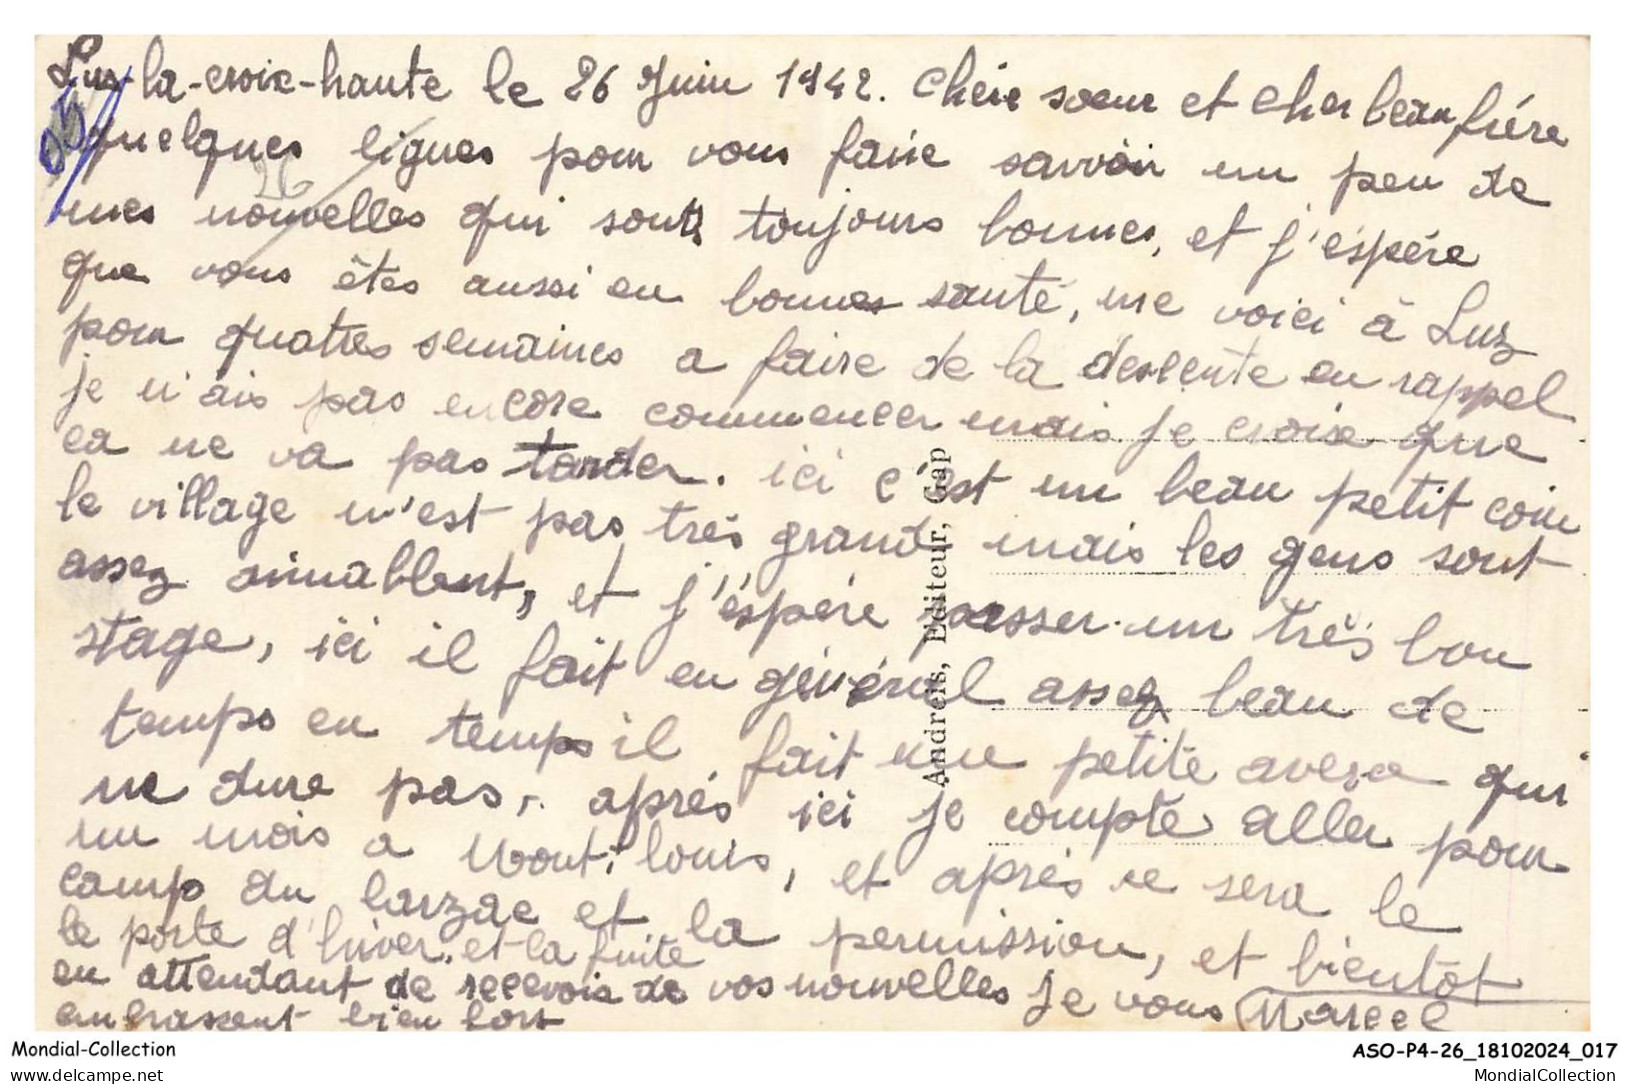 Lus-la-croix-haute le 26 Juin 1942. Chère soeur et cher beau frère
quelques lignes pour vous faire savvoir un peu de
mes nouvelles qui sont toujours bonnes, et j'éspére
que vous êtes aussi en bonnes santé, me voici à Luz
pour quattres semaines a faire de la descente en rappel
je n'ais pas encore commencer mais je croix que
ca ne va pas tarder. ici c'est un beau petit coin
le village n'est pas très grand mais les gens sont
assez aimablent, et j'éspére passer un très bon
stage, ici il fait en général assez beau de
temps en temps il fait une petite aversa qui
ne dure pas, aprés ici je compte aller pour
un mois a Mont-louis, et aprés ce sera le
camp du larzac et la permission, et bientôt
le porte d'hiver. et la fuite
en attendant de recevoir de vos nouvelles je vous
embrassent bien fort Marcel
05
26
Andreis, Editeur, Gap
Mondial-Collection
delcampe.net
ASO-P4-26_18102024_017
MondialCollection